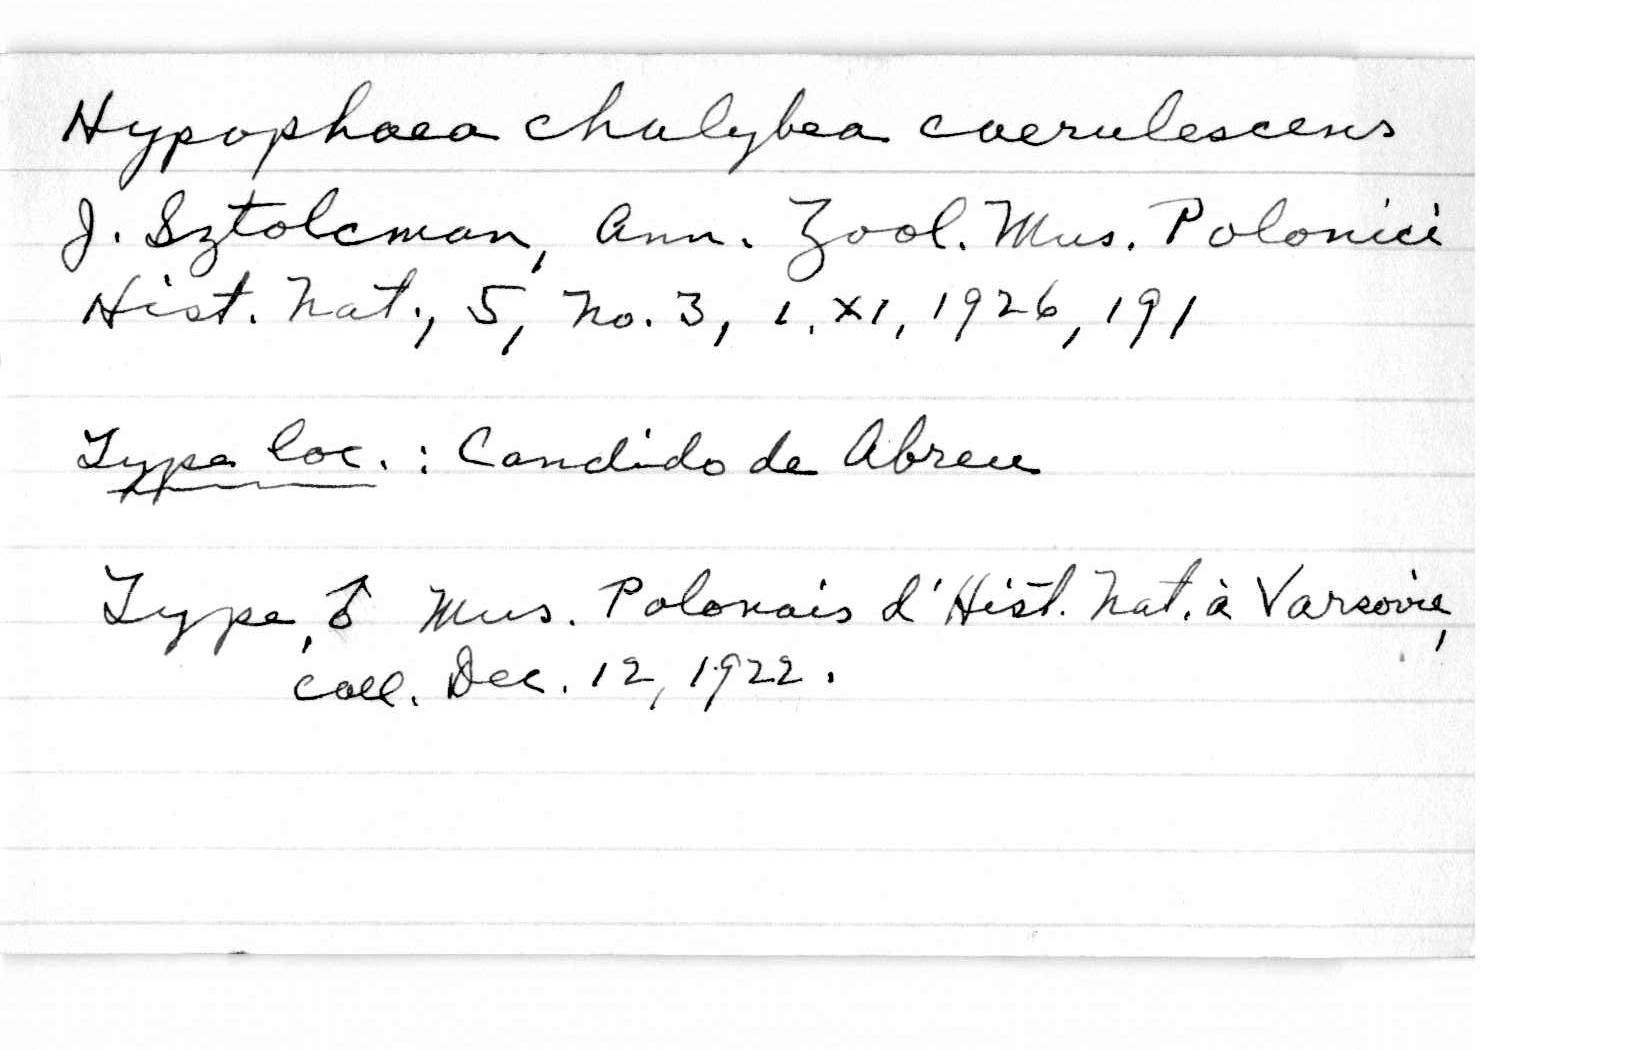 Hypophaea chalybea caerulescens
J. Sztolcman, Ann. Zool. Mus. Polonici
Hist. Nat., 5, No. 3, 1.XI, 1926, 191
Type loc. : Candido de Abreu
Type, ♂ Mus. Polonais d'Hist. Nat. à Varsovie,
coll. Dec. 12, 1922.